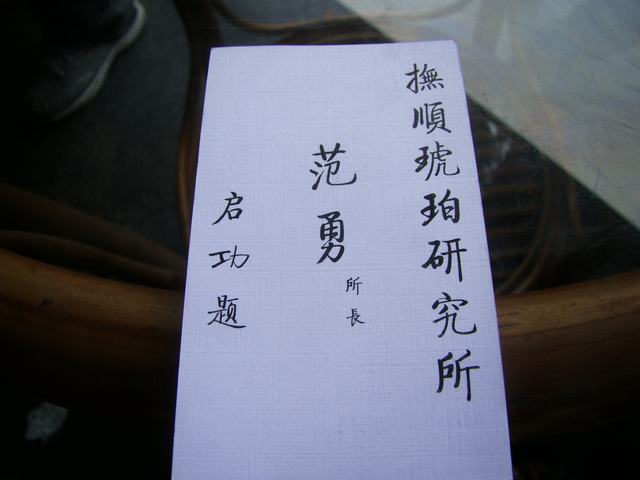 撫順琥珀研究所
范勇
所長
启功題